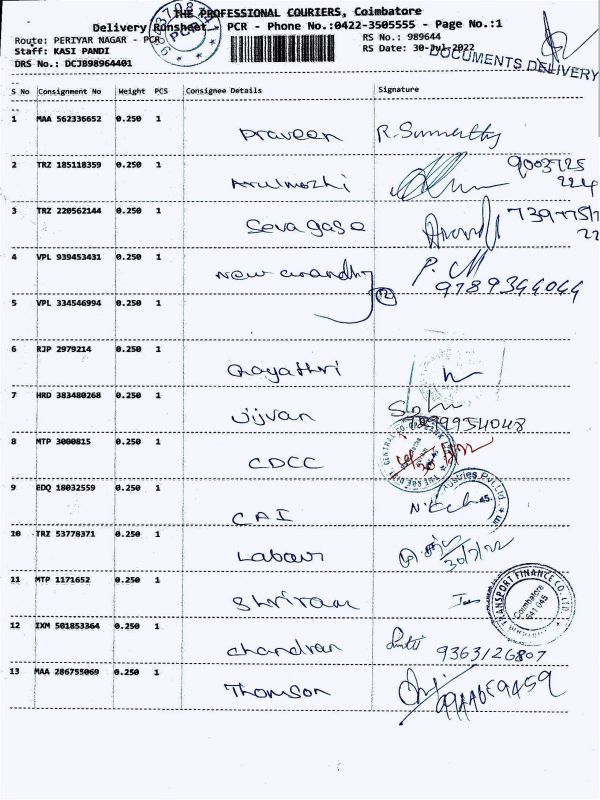 THE PROFESSIONAL COURIERS, Coimbatore
Delivery Runsheet PCR - Phone No.:0422-3505555 - Page No.:1
Route: PERIYAR NAGAR - PCR
RS No.: 989644
Staff: KASI PANDI
RS Date: 30-Jul-2022
DRS No.: DCJB98964401
DOCUMENTS DELIVERY
S No Consignment No Weight PCS Consignee Details Signature
1 MAA 562336652 0.250 1 Praveen
2 TRZ 185118359 0.250 1 Arulmozhi 9003725
224
3 TRZ 220562144 0.250 1 Sevagase
22
4 VPL 939453431 0.250 1 New P. M
9789344044
5 VPL 334546994 0.250 1
6 RJP 2979214 0.250 1 Gayathri
7 HRD 383480268 0.250 1 Jijvan
8 MTP 3000815 0.250 1 CDCC
9 EDQ 18032559 0.250 1 CAI
10 TRZ 53778371 0.250 1 Labour 30/7/22
11 MTP 1171652 0.250 1 Shriram
TRANSPORT FINANCE CO. LTD.
Coimbatore
641 045
12 IXM 501853364 0.250 1 Chandran 9363126807
13 MAA 286755069 0.250 1 Thomson